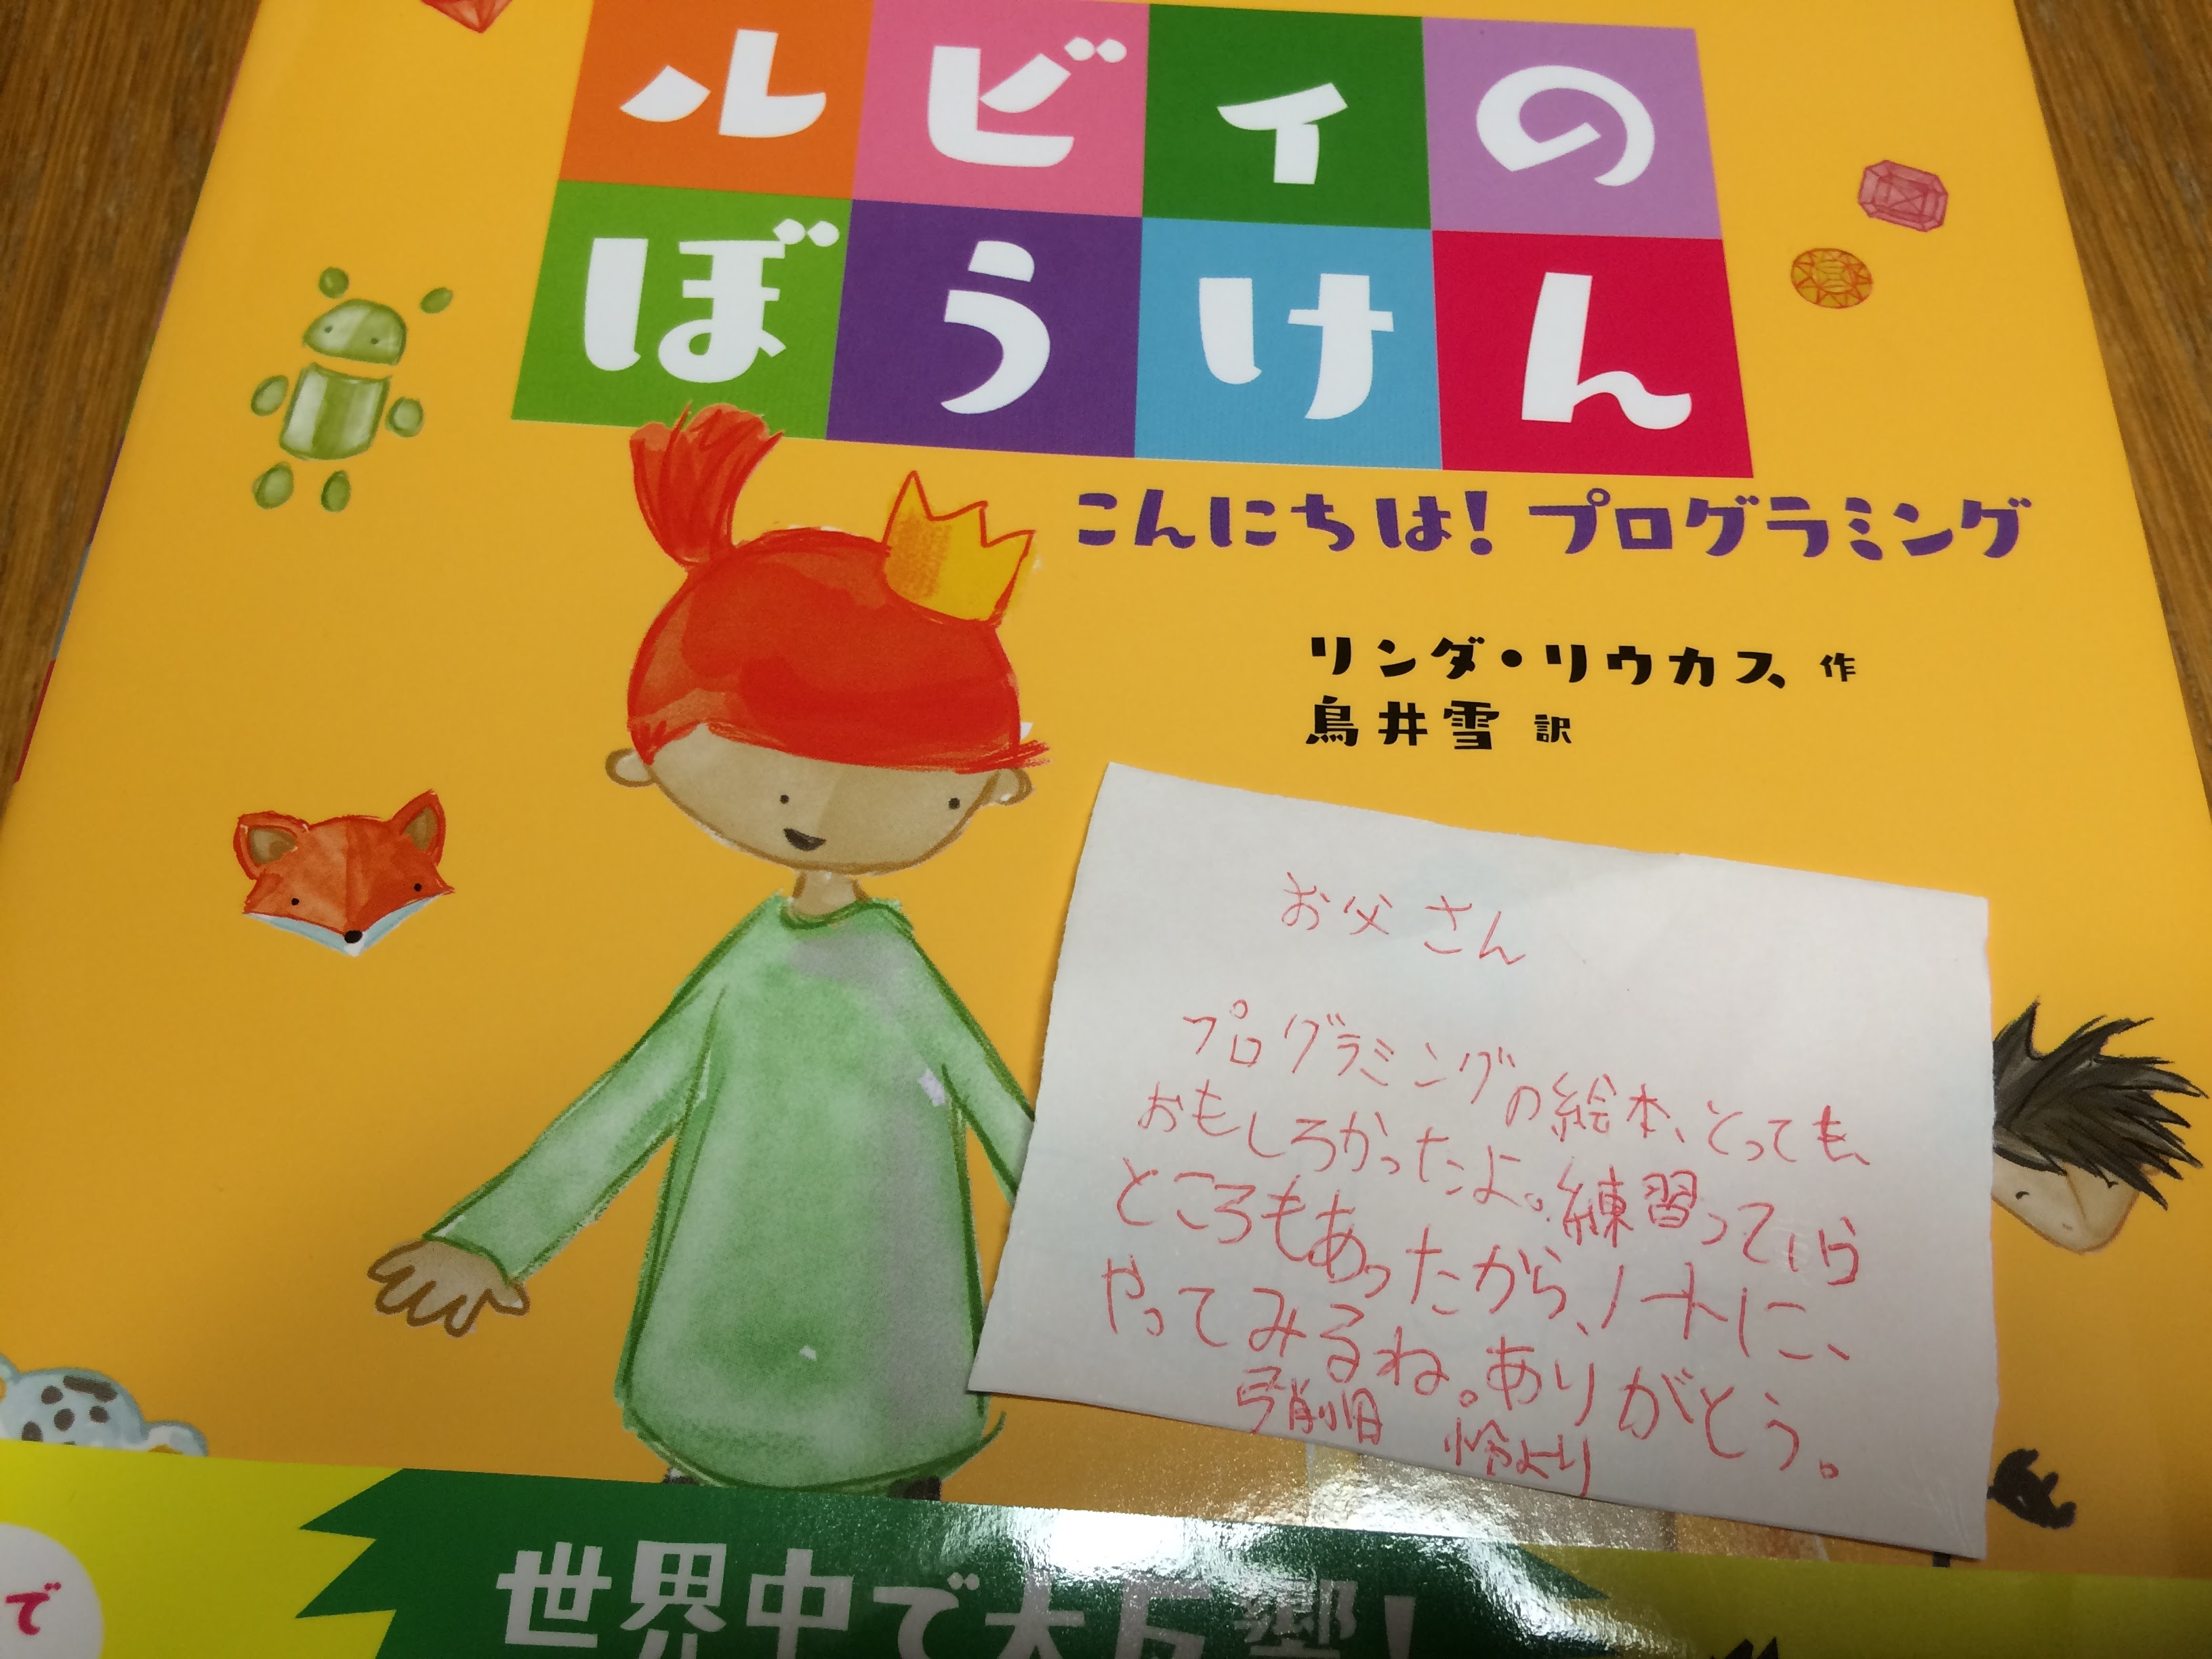 ルビィの
ぼうけん
こんにちは！プログラミング
リンダ・リウカス 作
鳥井雪 訳
お父さん
プログラミングの絵本、とっても、
おもしろかったよ。練習っていう
ところもあったから、ノートに、
やってみるね。ありがとう。
弓削田 怜より
で
世界中で大反響！